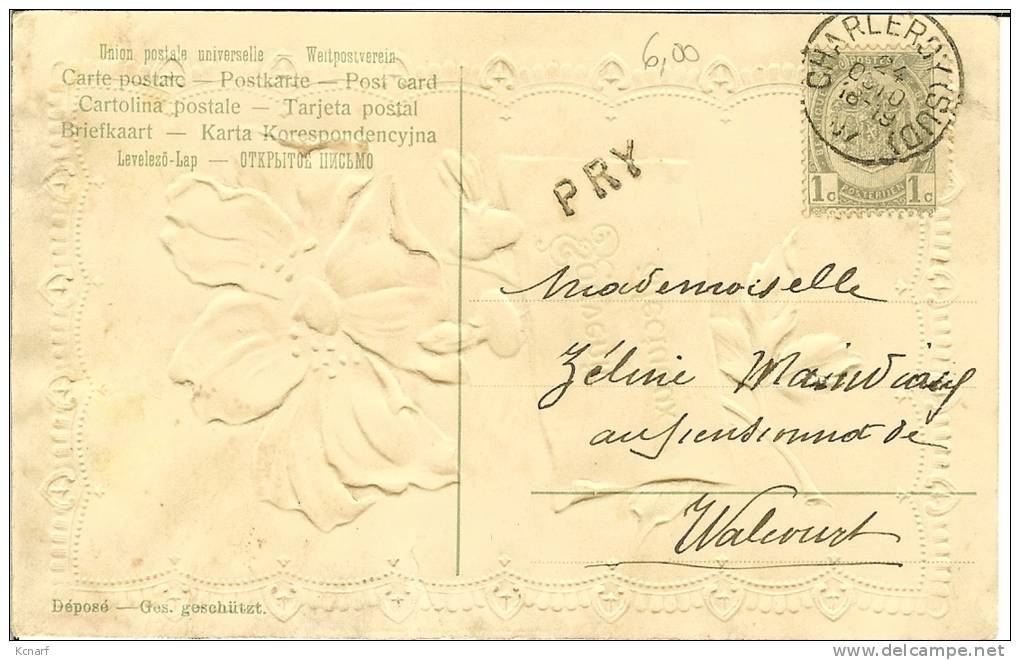 Union postale universelle — Weltpostverein
Carte postale — Postkarte — Post card
Cartolina postale — Tarjeta postal
Briefkaart — Karta Korespondencyjna
Levelező-Lap — ОТКРЫТОЕ ПИСЬМО
6,00
CHARLEROY (SUD)
1c POSTERIJEN 1c
PRY
Mademoiselle
Zéline
au pensionnat de
Walcourt
Déposé — Ges. geschützt.
Kcnarf
delcampe.net